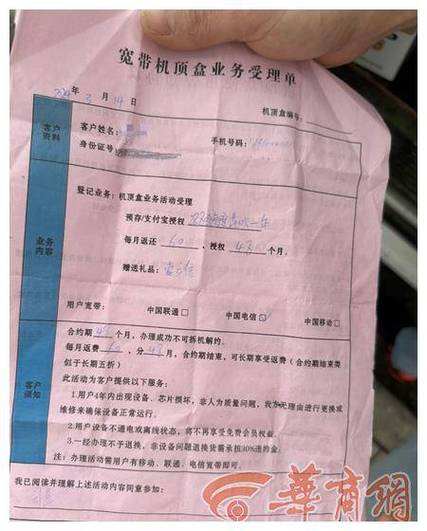 宽带机顶盒业务受理单
年3月14日
机顶盒编号:
客户资料
客户姓名:
手机号码:
身份证号
业务内容
登记业务: 机顶盒业务活动受理
预存/支付宝授权
每月返还 60 、授权 48 个月。
赠送礼品:
用户宽带: 中国联通□ 中国电信☑ 中国移动□
客户须知
合约期 48 个月，办理成功不可拆机解约。
每月返费 ，分 48 月，合约期结束，可长期享受返费（合约期结束类
似于长期五折）
此活动为客户提供以下服务:
1.用户4年内出现设备、芯片损坏、非人为质量问题，我方无理由进行更换或
维修来确保设备正常运行。
2.用户设备不通电或离线状态，将不再享受免费会员权金。
3.一经办理不予退换，非设备问题退换货需承担30%违约金。
注: 办理活动需用户有移动、联通、电信宽带即可。
我已阅读并理解上述活动内容同意参加:
華商網